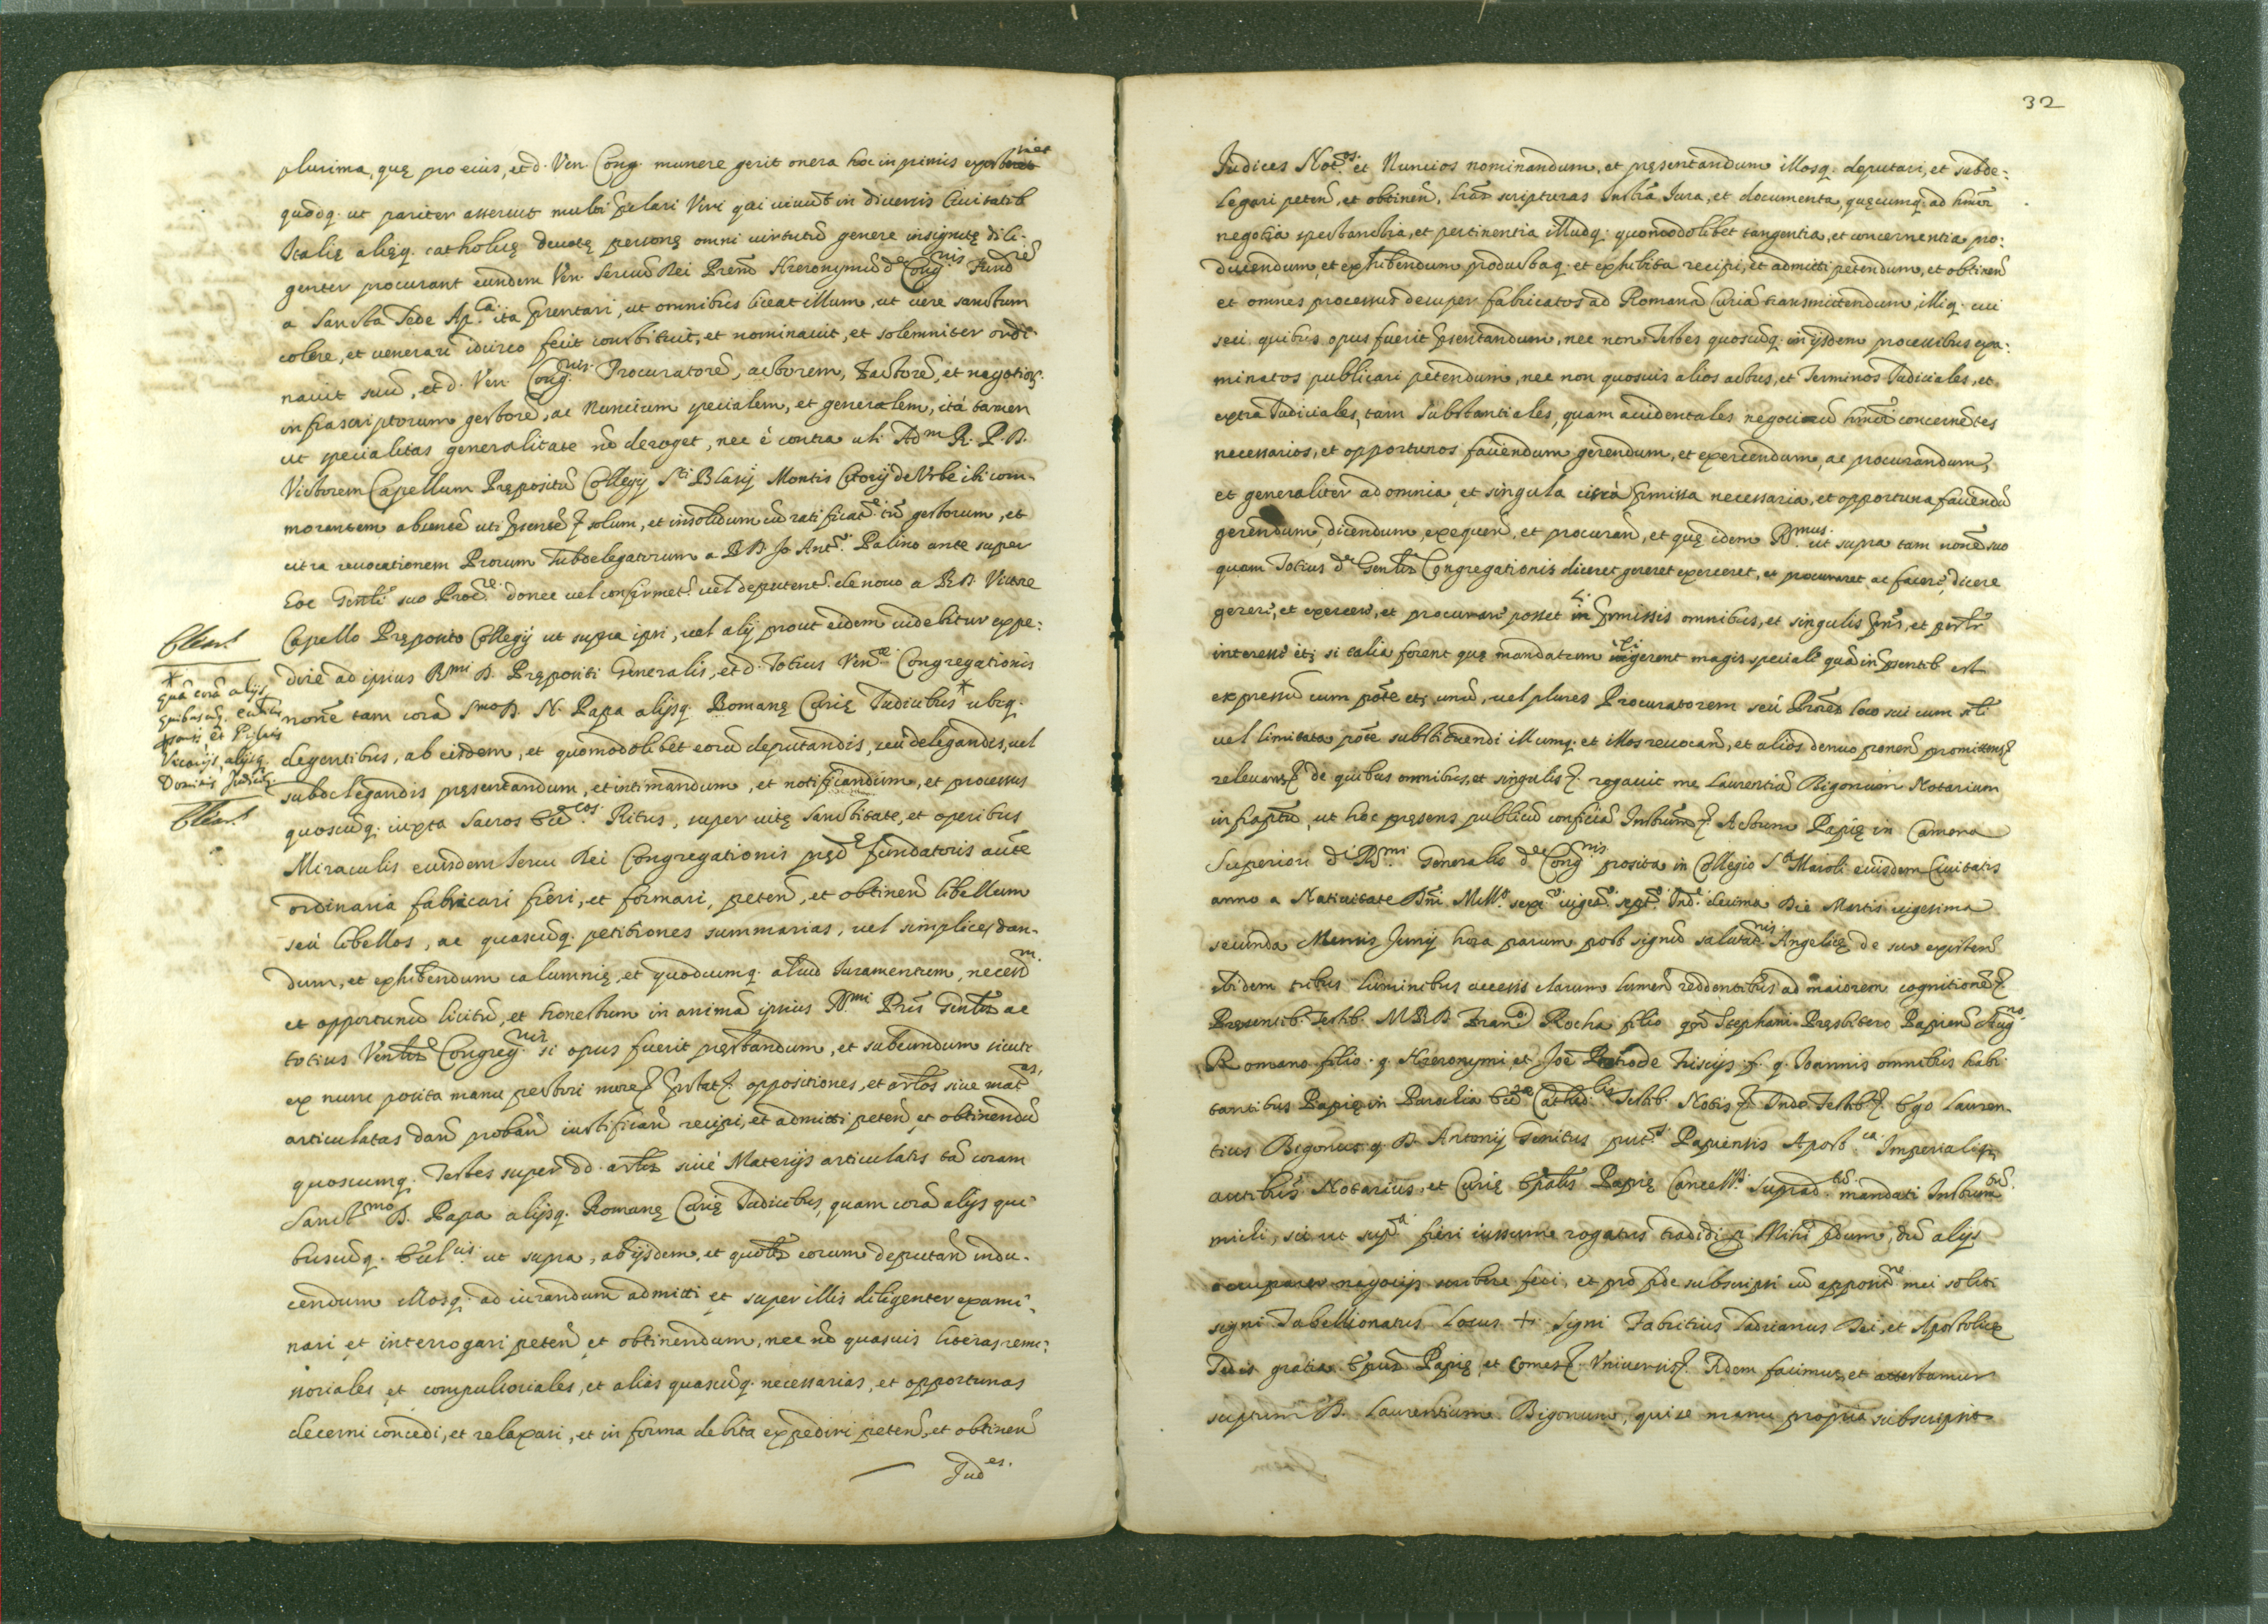 plurima, quę pro eius, et d. Ven. Cong. munere gerit onera hoc in primis
quodq. ut pariter asserunt multi sęculari Viri qui vivunt in diversis Civitatib.
Italię alięq. catholicę devotę personę omni virtutũ genere insignitę dili-
genter procurant eundem Ven. Servũ Dei Prem̃ Hieronymũ dę Cong.nis Fundrẽ
a Sancta Sede Ap.ca ita p̃sentari, ut omnibus liceat illum, ut vere sanctum
colere, et venerari idcirco fecit constituit, et nominavit, et solemniter ordi-
navit suũ, et d. Ven. Cong.nis Procuratorẽ, actorem, Factorẽ, et negotior.
infrascriptorum gestorẽ, ac Nuncium specialem, et generalem, ità tamen
ut specialitas generalitate nõ deroget, nec è contra uti Adm R. P. D.
Victorem Capellum Prępositũ Collegij Sti Blasij Montis Citorij de Urbe ibi com-
morantem absentẽ uti p̃sentẽ solum, et insolidum cũ ratificat.e tñ gestorum, et
citra revocationem Prorum Subdelegatorum a R. D. Jo Ant.o Palino ante super
Eoe Gen̄li suo Proc.re donec vel confirmet.r vel deputent.r de novo a R. D. Victore
Capello Pręposito Collegij ut supra ipsi, vel alij prout eidem videbitur expe:
dire ad ipsius Rmi D. Prępositi Generalis, et d. Totius Ven.ae Congregationis
* quã corã alijs
quibuscũq.
Vicarijs, alijsq.
nome tam corã Smo D. N. Papa alijsq. Romanę Curię Iudicibus * ubiq.
degentibus, ab eisdem, et quomodolibet eorũ deputandis, seu delegandis, vel
subdelegandis pręsentandum, et intimandum, et notificandum, et processus
quoscũq. iuxta Sacros Eccl.cos Ritus, super vitę Sanctitate, et operibus
Miraculis eiusdem Servi Dei Congregationis pręd.ę fundatoris aucte
ordinaria fabricari fieri, et formari, peteñ, et obtineñ libellum
seù libellos, ac quascũq. petitiones summarias, vel simplices dan-
dum, et exhibendum calumnię, et quodcumq. aliud Iuramentum, necess.m
et opportunũ licitũ, et honestum in animã ipsius Rmi Pris Gen̄lis ac
totius Ven.lis Congreg.nis si opus fuerit pręstandum, et subeundum sicuti
ex nunc posita manu pectori more oppositiones, et artlos sive mat.as
articulatas dañ probañ iustificañ recipi, et admitti peteñ, et obtinendũ
quoscumq. Testes super dd. artlis sivè Materijs articulatis tã coram
Sanct.mo D. Papa alijsq. Romanę Curię Iudicibus, quam corã alijs qui-
buscũq. ut supra, ab ijsdem, et quolibet eorum deputañ indu-
cendum illosq. ad iurandum admitti et super illis diligenter exami-
nari et interrogari peteñ et obtinendum, nec nõ quasvis literas remis-
soriales et compulsoriales, et alias quascũq. necessarias, et opportunas
decerni concedi, et relaxari, et in forma debita expediri peteñ, et obtineñ
Iud.es
32
Judices Not.os et Nuncios nominandum, et pręsentandum illosq. deputari, et subde:
legari peteñ, et obtineñ, scripturas Instra Iura, et documenta, quęcumq. ad hmõi
negotia spectantia, et pertinentia illudq. quomodolibet tangentia, et concernentia pro:
ducendum, et exhibendum productaq. et exhibita recipi, et admitti petendum, et obtineñ
et omnes processus desuper fabricatos ad Romanã Curiã transmittendum, illiq. cui
seu quibus opus fuerit p̃sentandum, nec non Testes quoscũq. in ijsdem processibus exa-
minatos publicari petendum, nec non quosvis alios actus, et Terminos Iudiciales, et
extra Iudiciales, tam substantiales, quam accidentales negocium hmõi concernẽtes
necessarios, et opportunos faciendum gerendum, et exercendum, ac procurandum,
et generaliter ad omnia et singula circà p̃missa necessaria, et opportuna faciendũ
gerendum, dicendum, exequeñ, et procurañ, et quę idem Rmus. ut supra tam nomẽ suo
quam Totius dę Gen̄lis Congregationis diceret gereret exerceret, et procuraret ac facere, dicere
gerere, et exercere, et procurare posset in p̃missis omnibus, et singulis
interesse etĩ si talia forent quę mandatum exigerent magis speciale quã in p̃sentib. est
expressũ cum põte etĩ unũ, vel plures Procuratorem seù Prores loco sui cum
vel limitata põte substituendi illumq. et illos revocañ, et alios denuo poneñ promittens
relevans de quibus omnibus, et singulis rogavit me Laurentiũ Bigonum Notarium
infraptũ, ut hoc pręsens publicũ conficiã Instrum. Actum Papię in Camera
Superiori di Rmi Generalis dę Cong.nis posita in Collegio S.ti Maioli eiusdem Civitatis
anno a Nativitate Dñi Mill.o sexc.o viges.o sept.o Ind.e decima Die Martis vigesima
secunda Mensis Junij hora parum post signũ salutat.nis Angelicę de sero existeñ
ibidem tribus luminibus accensis clarum lumen reddentibus ad maiorem cognitionẽ
Pręsentib. Testib. M. R. D. Fran.co Rocha filio qm̃ Stephani Pręsbitero Papieñ Aug.no
Romano filio q. Hieronymi, et Joẽ Petro de Friscijs f. q. Ioannis omnibus habi-
tantibus Papię in Parochia Eccl.ę Cathed.lis Testib. Notis Inde Testib. Ego Lauren-
tius Bigonus q. D. Antonij Genitus pub.s Papiensis Apost.ca Imperialiq.
auct.bus Notarius, et Curię Ep̃alis Papię Cancell.s suprad.tũ mandati Instrum.tũ
mihi, sic ut sup.a fieri iussum rogatus tradidi p. Mihi fidum, dũ alijs
occuparer negocijs scribere feci, et pro fide subscripsi cũ apposit.ne mei soliti
signi Tabellionatus Locus + Signi Fabritius Landrianus Dei, et Apostolicę
Sedis gratia Epus Papię, et Comes Universis Fidem facimus, et attestamur
suptum D. Laurentium Bigonum, qui se manu propria subscripsit